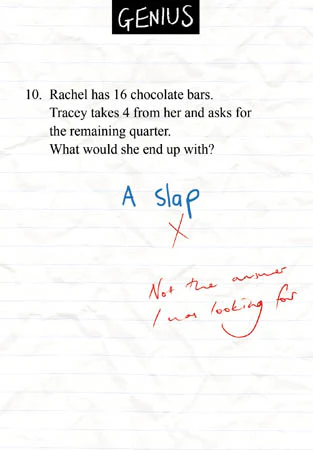 GENIUS
10. Rachel has 16 chocolate bars.
Tracey takes 4 from her and asks for
the remaining quarter.
What would she end up with?
A slap
X
Not the answer
I was looking for